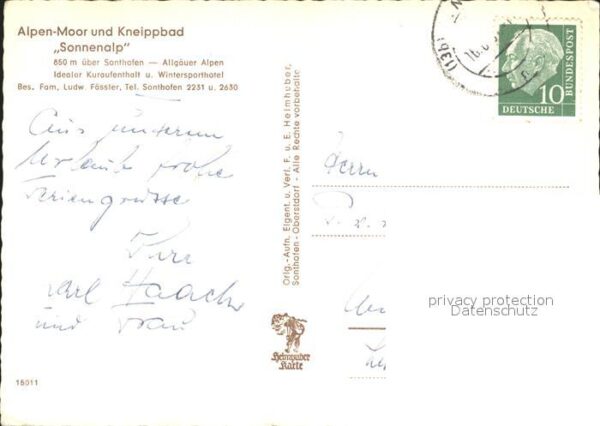 Alpen-Moor und Kneippbad
„Sonnenalp"
850 m über Sonthofen — Allgäuer Alpen
Idealer Kuraufenthalt u. Wintersporthotel
Bes. Fam. Ludw. Fässler, Tel. Sonthofen 2231 u. 2630
Aus unserem
Urlaub frohe
Feriengrüsse
Karl Haacke
und Frau
15011
Orig.-Aufn. Eigent. u. Verl. F. u. E. Heimhuber,
Sonthofen - Oberstdorf - Alle Rechte vorbehalten
Heimhuber
Karte
Herrn
10
DEUTSCHE
BUNDESPOST
(13b)
privacy protection
Datenschutz